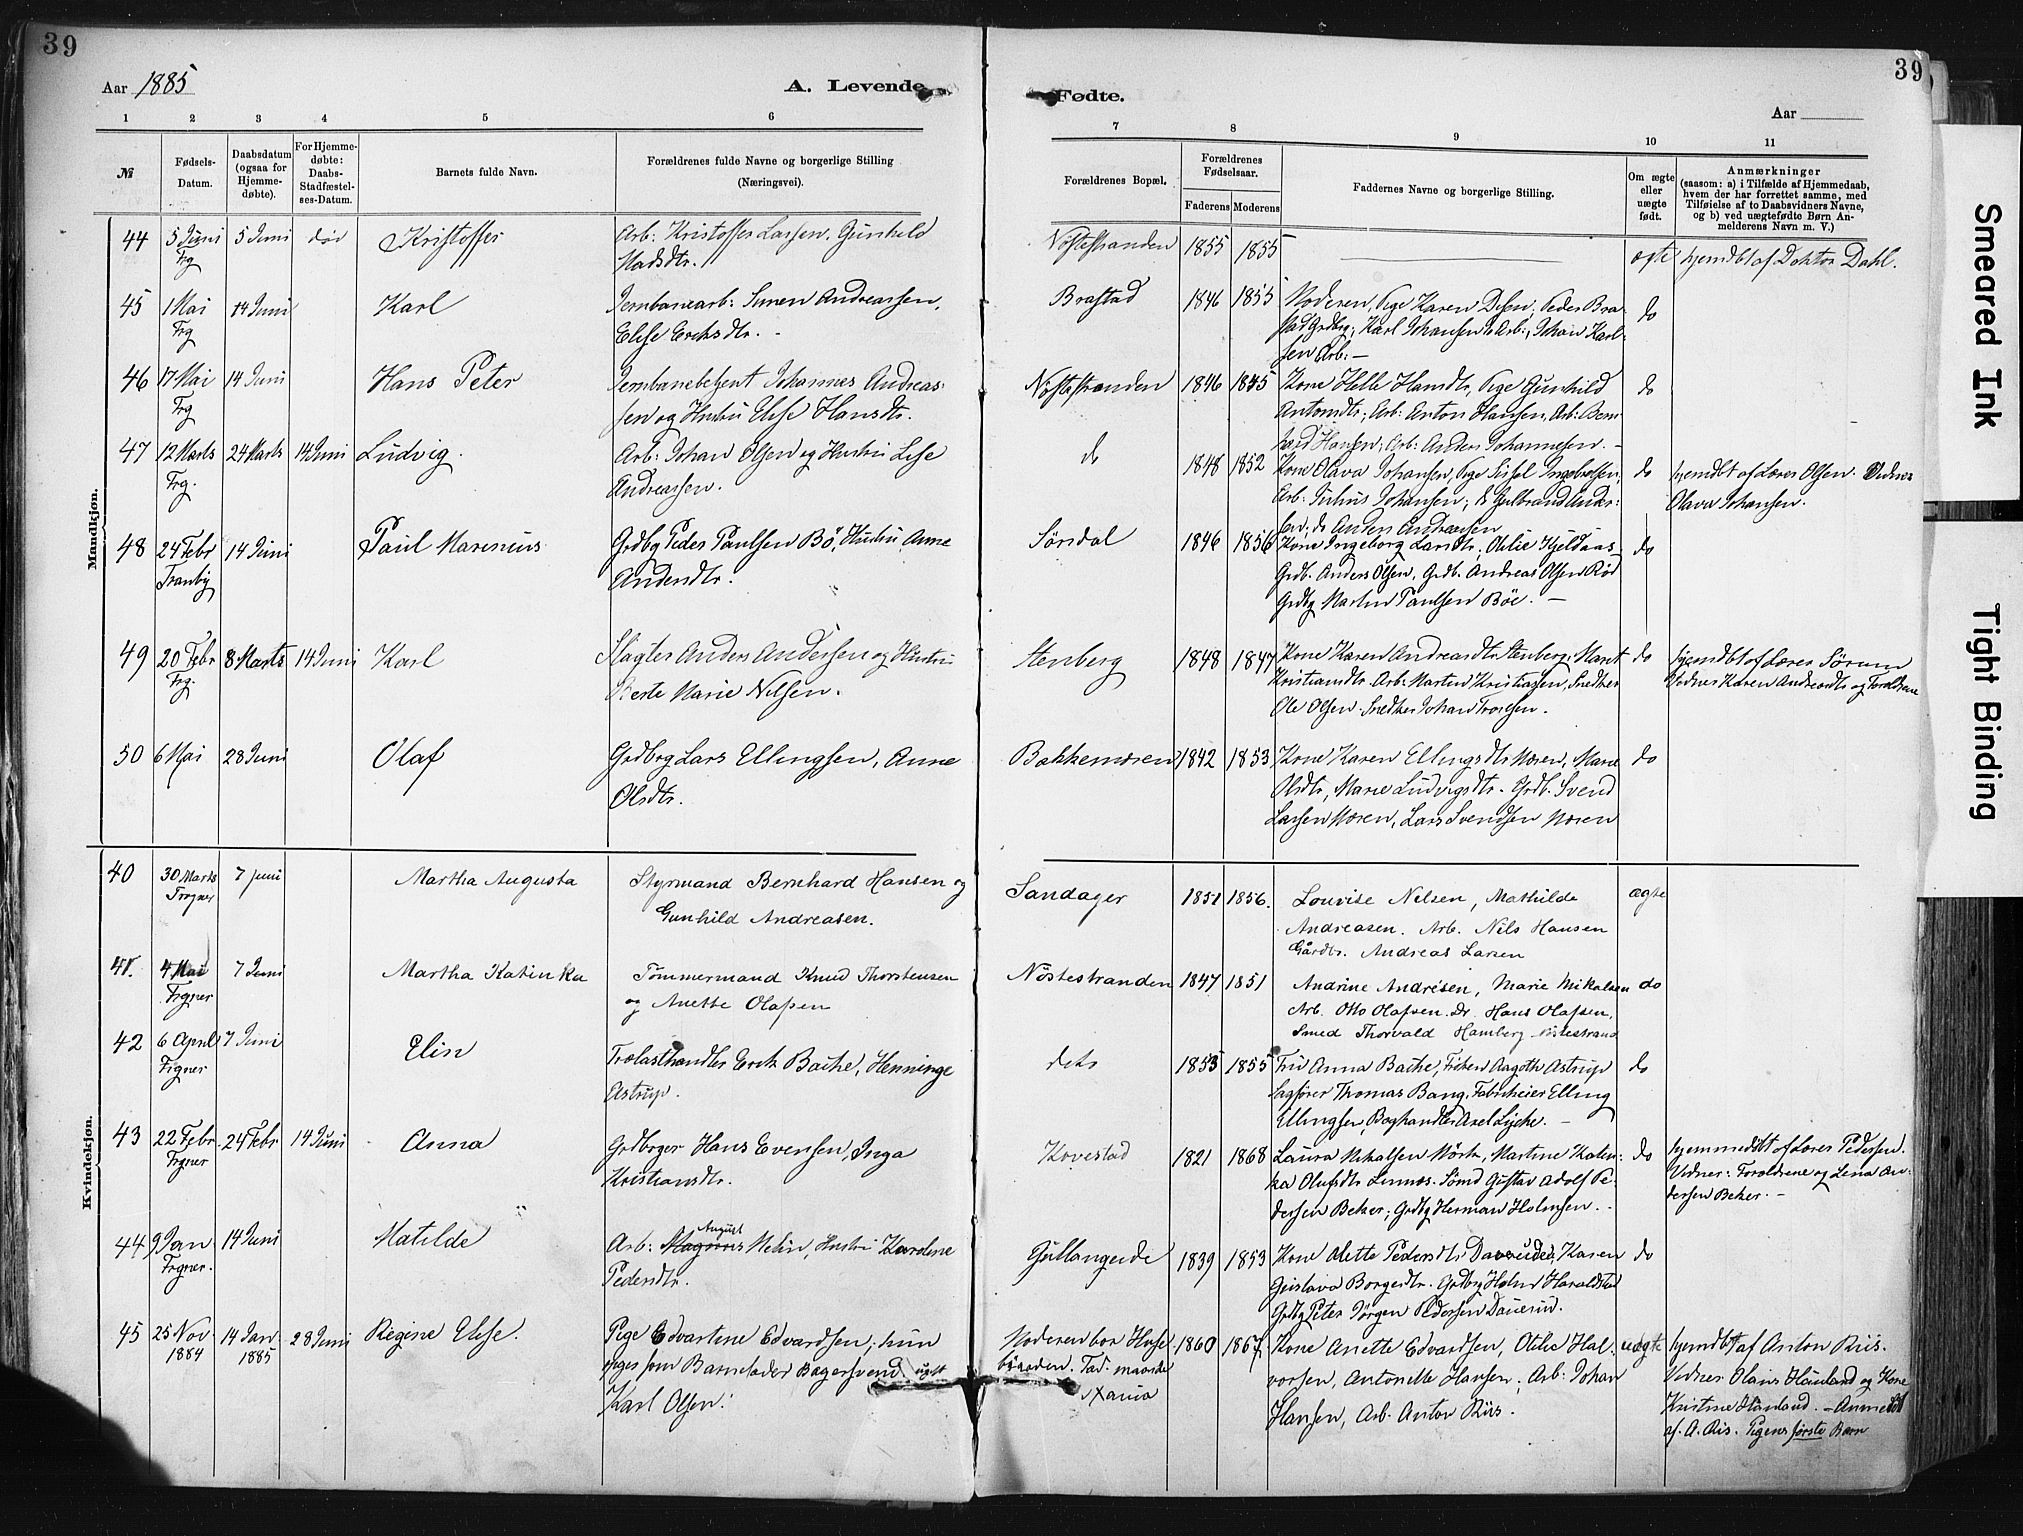 39
39
Aar 1885
A. Levende
Fødte.
Aar
1 2 3 4 5 6
7 8 9 10 11
№
Fødsels-
Datum.
Daabsdatum
(ogsaa for
Hjemme-
døbte).
For Hjemme-
døbte:
Daabs-
Stadfæstel-
ses-Datum.
Barnets fulde Navn.
Forældrenes fulde Navne og borgerlige Stilling
(Næringsvei).
Forældrenes Bopæl.
Forældrenes
Fødselsaar.
Faderens Moderens
Faddernes Navne og borgerlige Stilling.
Om ægte
eller
uægte
født.
Anmærkninger
(saasom: a) i Tilfælde af Hjemmedaab,
hvem der har forrettet samme, med
Tilføielse af to Daabsvidners Navne,
og b) ved uægtefødte Børn An-
melderens Navn m. V.)
Mandkjøn.
44 5 Juni 5 Juni død Kristoffer Arb: Kristoffer Larsen, Gunhild
Frg Madsdtr.
Nøstestranden 1855 1855 ægte hjemdbt af Doktor Dahl.
45 1 Mai 14 Juni Karl Jernbanearb: Simen Andreassen,
Frg Elise Eriksdtr. -
Brastad 1846 1855 Moderen, Pige Karen Olsen, Peder Bra- do
stad Grdbg; Karl Johansen Arb:, Johan Karl-
sen Arb: -
46 17 Mai 14 Juni Hans Peter Jernbanebetjent Johannes Andreas-
Frg sen og Hustru Elise Hansdtr.
Nøstestranden 1846 1845 Kone Helle Hansdtr, Pige Gunhild do
Antondtr; Arb: Anton Hansen, Arb: Bern-
hard Hansen; Arb: Anders Johannesen. -
47 12 Marts 24 Marts 14 Juni Ludvig. Arb: Johan Olsen og Hustru Lise
Frg. Andreassen.
do 1848 1852 Kone Olava Johansen, Pige Sissel Ingebretsen, do hjemdbt af Lærer Olsen. Vidner
Arb: Julius Johansen; do Gulbrand Ander- Olava Johansen.
sen; do Anders Andreasen
48 24 Febr 14 Juni Paul Marenius Grdbg Peder Paulsen Bö, Hustru Anne
Tranby Andersdtr.
Sørsdal 1846 1856 Kone Ingeborg Larsdtr, Othilie Kjeldaas do
Grdb. Anders Olsen, Grdb. Andreas Olsen Rød
Grdbg Martin Paulsen Böe. -
49 20 Febr 8 Marts 14 Juni Karl Slagter Anders Andersen og Hustru
Frg. Berte Marie Nilsen.
Stenberg 1848 1847 Kone Karen Andreasdtr Stenberg, Maret do hjemdbt af Lærer Sörum
Kristiansdtr. Arb: Martin Kristiansen, Snedker Vidner Karen Andreasdtr og Forældrene
Ole Olsen. Snedker Johan Iversen.
50 6 Mai 28 Juni Olaf Grdbrg Lars Ellingsen, Anne
Olsdtr.
Bakkemoren 1842 1853 Kone Karen Ellingsdtr Moren, Marie do
Olsdtr, Marie Ludvigsdtr. Grdb. Svend
Larsen Moren, Lars Svendsen Moren
Kvindekjøn.
40 30 Marts 7 juni Martha Augusta Styrmand Bernhard Hansen og
Frogner Gunhild Andreasen.
Sandager 1851 1856. Lovise Nelsen, Mathilde ægte
Andreasen. Arb. Nils Hansen
Gårdbr. Andreas Larsen
41. 4 Mai 7 Juni Martha Katinka Tømmermand Knud Thorstensen
Frgner og Anette Olafsen
Nøstestranden 1847 1851 Andrine Andrésen, Marie Mikalsen do
Arb. Otto Olafsen. Do. Hans Olafsen,
Smed Thorvald Hamberg Nöstestrand
42 6 April 7 Juni Elin Trælasthandler Erik Bache, Henninge
Frgner Astrup.
dets 1853 1855 Fru Anna Bache, Frøken Aagoth Astrup do
Sagfører Thomas Bang, Fabrikeier Elling
Ellingsen, Boghandler Axel Lyche. -
43 22 Febr 24 Febr 14 Juni Anna Grdbrger Hans Evensen, Inga
Frgner Kristiansdtr.
Kovestad 1821 1868 Laura Mikalsen Mörk, Martine Katin- do hjemmedöbt af Lærer Pedersen.
ka Olufsdtr Linnes. Smd Gustav Adolf Pe- Vidner: Forældrene og Lena An-
dersen Beker; Grdbg Herman Holmsen. - dersen Beker. -
44 9 Jan 14 Juni Matilde Arb: Magnus August Melin, Hustru Karoline
Frgner. Pedersdtr.
Gullaugeie 1839 1853 Kone Olette Pedersdtr Daverud, Karen do
Gustava Borgesdtr. Grdbg Holm Haraldstad
Grdbg Peter Jörgen Pedersen Daverud.
45 25 Nov 14 Jan 28 Juni Regine Elise. Pige Edvartine Edvardsen, hun
1884 1885 opges som Barnefader Bagersvend ugift
Karl Olsen.
Moderen bor Huse 1860 1867 Kone Anette Edvardsen, Otilie Hal- uægte hjemdbt af Anton Riis.
byraaden. Fad: maaske vorsen, Antonette Hansen; Arb: Johan Vidner Hans Haveland og Kone
Xania Hansen, Arb. Anton Riis. Kristine Haveland. - Anmeldt
af A. Riis. Pigens første Barn
Smeared Ink
Tight Binding